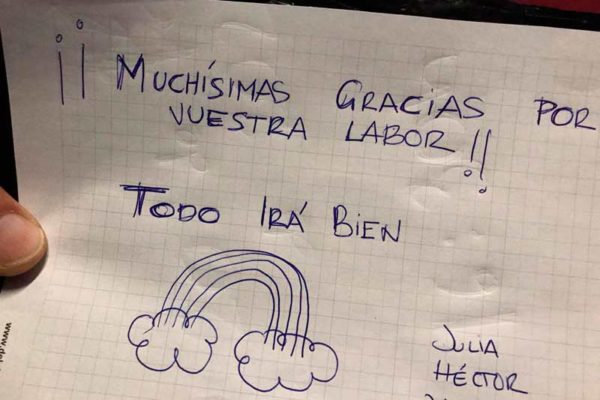 ¡¡ MUCHÍSIMAS GRACIAS POR
VUESTRA LABOR!!
TODO IRÁ BIEN
JULIA
HÉCTOR